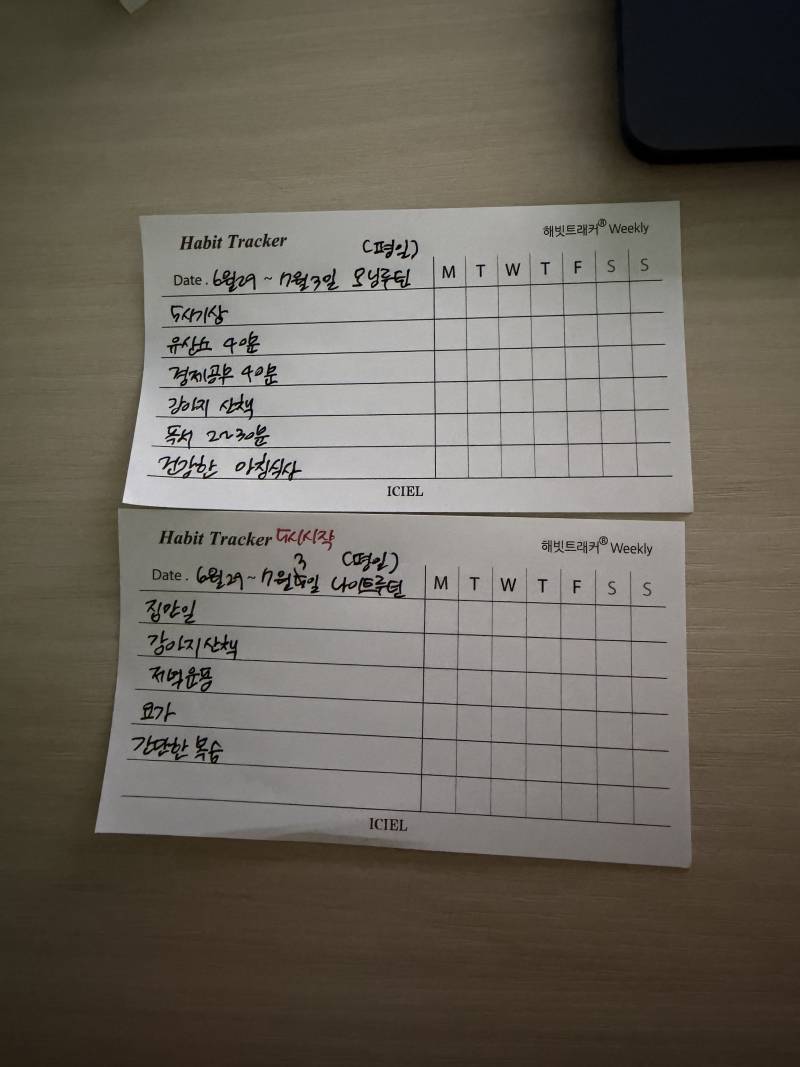 Habit Tracker
해빗트래커® Weekly
(평일)
Date . 6월29 ~ 7월3일 모닝루틴
M T W T F S S
5시기상
유산소 40분
경제공부 40분
강아지 산책
독서 20~30분
건강한 아침식사
ICIEL
Habit Tracker 5시시작
해빗트래커® Weekly
3 (평일)
Date . 6월29 ~ 7월 일 나이트루틴
M T W T F S S
집안일
강아지산책
저녁운동
요가
간단한 복습
ICIEL